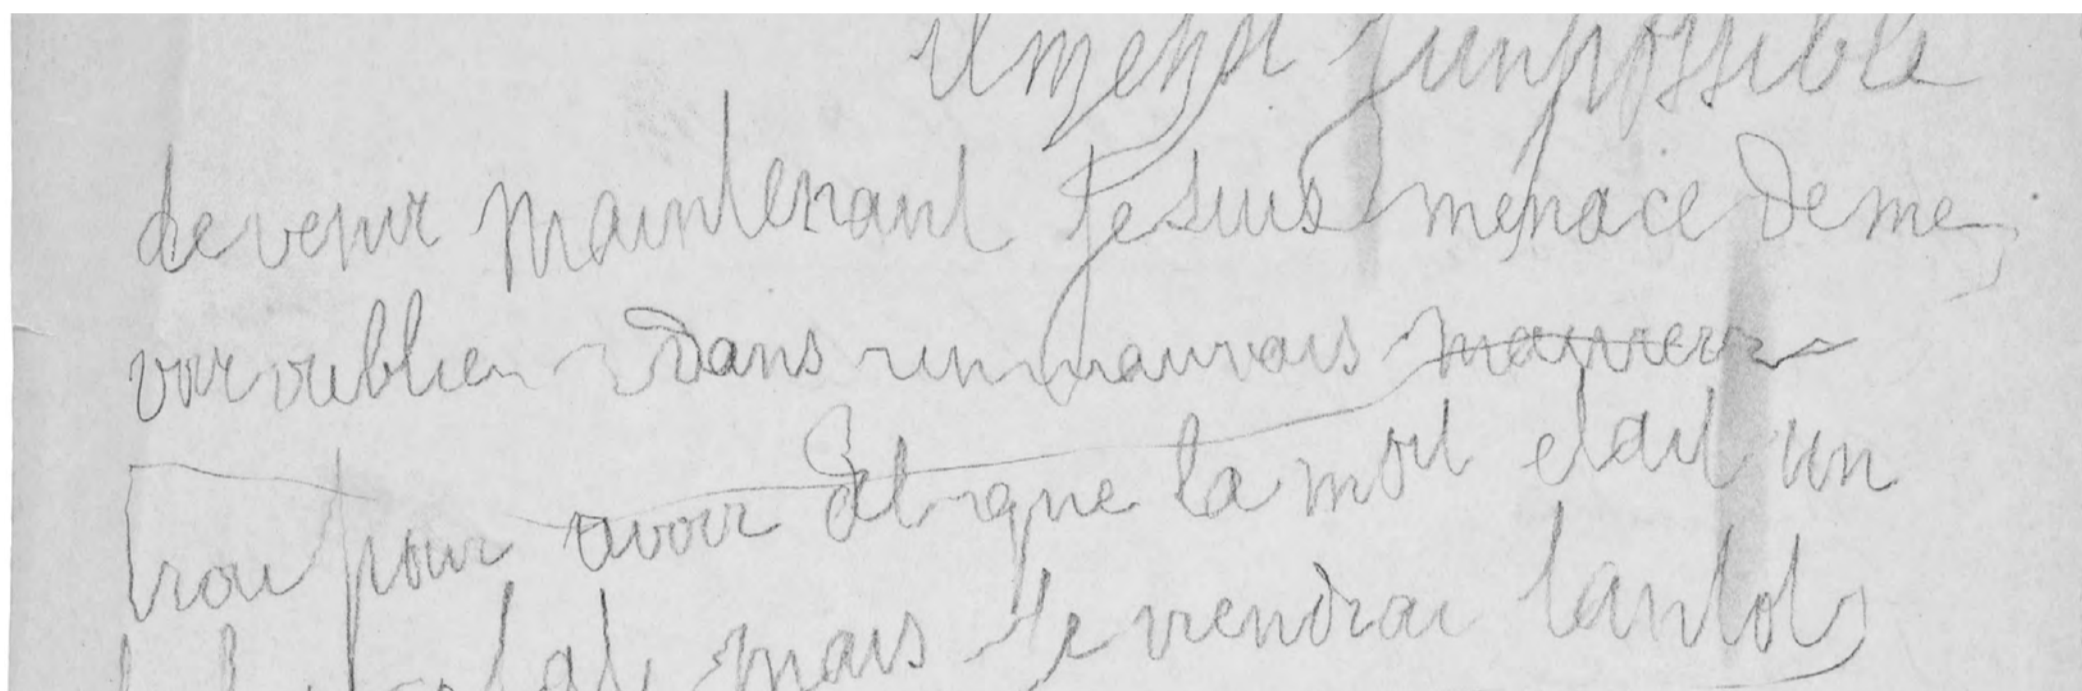 il m'est impossible
de venir maintenant Je suis menace de me
voir oublier dans un mauvais
trou pour avoir dit que la mort etait un
mais Je viendrai tantot